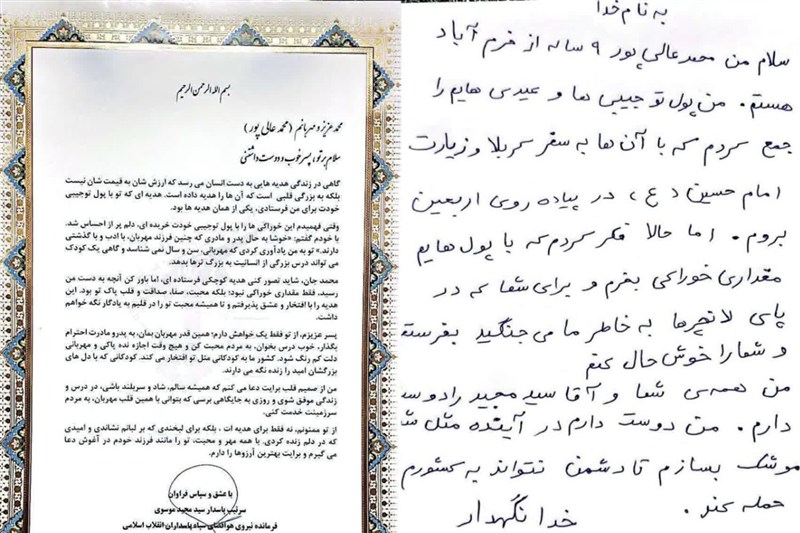 بسم الله الرحمن الرحیم
محمد عزیز و مهربانم (محمد عالی پور)
سلام بر تو، پسر خوب و دوست داشتنی
گاهی در زندگی هدیه هایی به دست انسان می رسد که ارزش شان به قیمت شان نیست
بلکه به بزرگی قلبی است که آن ها را هدیه داده است. هدیه ای که تو با پول توجیبی
خودت برای من فرستادی، یکی از همان هدیه ها بود.
وقتی فهمیدم این خوراکی ها را با پول توجیبی خودت خریده ای، دلم پر از احساس شد.
با خودم گفتم: «خوشا به حال پدر و مادری که چنین فرزند مهربان، با ادب و با گذشتی
دارند.» تو به من یادآوری کردی که مهربانی، سن و سال نمی شناسد و گاهی یک کودک
می تواند درس بزرگی از انسانیت به بزرگ ترها بدهد.
محمد جان، شاید تصور کنی هدیه کوچکی فرستاده ای، اما باور کن آنچه به دست من
رسید، فقط مقداری خوراکی نبود؛ بلکه محبت، صفا، صداقت و قلب پاک تو بود. این
هدیه را با افتخار و عشق پذیرفتم و تا همیشه محبت تو را در قلبم به یادگار نگه خواهم
داشت.
پسر عزیزم، از تو فقط یک خواهش دارم؛ همین قدر مهربان بمان، به پدر و مادرت احترام
بگذار، خوب درس بخوان، به مردم محبت کن و هیچ وقت اجازه نده پاکی و مهربانی
دلت کم رنگ شود. کشور ما به کودکانی مثل تو افتخار می کند. کودکانی که با دل های
بزرگشان امید را زنده نگه می دارند.
من از صمیم قلب برایت دعا می کنم که همیشه سالم، شاد و سربلند باشی، در درس و
زندگی موفق شوی و روزی به جایگاهی برسی که بتوانی با همین قلب مهربان، به مردم
سرزمینت خدمت کنی.
از تو ممنونم، نه فقط برای هدیه ات ، بلکه برای لبخندی که بر لبانم نشاندی و امیدی
که در دلم زنده کردی. با همه مهر و محبت، تو را مانند فرزند خودم در آغوش دعا
می گیرم و برایت بهترین آرزوها را دارم.
با عشق و سپاس فراوان
سرتیپ پاسدار سید مجید موسوی
فرمانده نیروی هوافضای سپاه پاسداران انقلاب اسلامی
به نام خدا
سلام من محمد عالی پور ۹ ساله از خرم آباد
هستم. من پول تو جیبی ها و عیدی هایم را
جمع کردم که با آن ها به سفر کربلا و زیارت
امام حسین (ع) در پیاده روی اربعین
بروم. اما حالا فکر کردم که با پول هایم
مقداری خوراکی بخرم و برای شما که در
پای لانچرها به خاطر ما می جنگید بفرستم
و شما را خوش حال کنم
من همه ی شما و آقا سید مجید را دوست
دارم. من دوست دارم در آینده مثل
موشک بسازم تا دشمن نتواند به کشورم
حمله کند.
خدا نگهدار